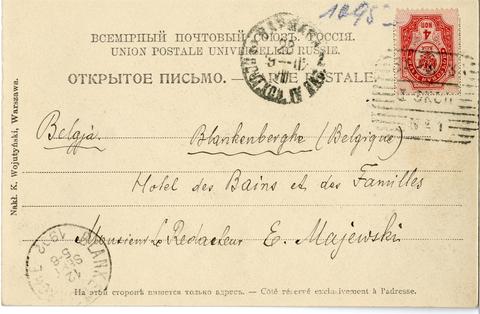 1495
ВСЕМІРНЫЙ ПОЧТОВЫЙ СОЮЗЪ. РОССІЯ.
UNION POSTALE UNIVERSELLE RUSSIE.
ОТКРЫТОЕ ПИСЬМО. — CARTE POSTALE.
Belgja. Blankenberghe (Belgique)
Hotel des Bains et des Familles
Monsieur Le Redacteur E. Majewski
На этой сторонѣ пишется только адресъ. — Côté réservé exclusivement à l'adresse.
Nakł. K. Wojutyński, Warszawa.
4
КОП
ВАРШАВА
BLANK